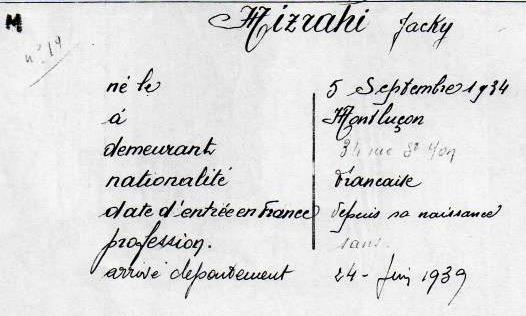 M
n° 19
Mizrahi Jacky
né le 5 Septembre 1934
à Montluçon
demeurant 34 rue St Yon
nationalité francaise
date d'entrée en france depuis sa naissance
profession. sans.
arrivé departement 24 - Juin 1939